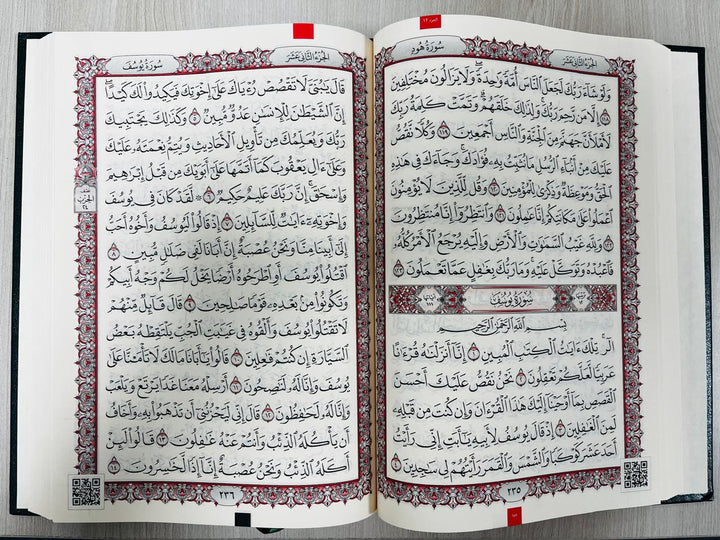 الجزء ١٢
الجزء الثاني عشر
سورة هود
ولو شاء ربك لجعل الناس أمة واحدة ولا يزالون مختلفين
١١٨ إلا من رحم ربك ولذلك خلقهم وتمت كلمة ربك
لأملأن جهنم من الجنة والناس أجمعين ١١٩ وكلا نقص
عليك من أنباء الرسل ما نثبت به فؤادك وجاءك في هذه
الحق وموعظة وذكرى للمؤمنين ١٢٠ وقل للذين لا يؤمنون
اعملوا على مكانتكم إنا عاملون ١٢١ وانتظروا إنا منتظرون
١٢٢ ولله غيب السموات والأرض وإليه يرجع الأمر كله
فاعبده وتوكل عليه وما ربك بغافل عما تعملون ١٢٣
سورة يوسف
بسم الله الرحمن الرحيم
الر تلك ءايت الكتب المبين ١ إنا أنزلنه قرءنا
عربيا لعلكم تعقلون ٢ نحن نقص عليك أحسن
القصص بما أوحينا إليك هذا القرءان وإن كنت من قبله
لمن الغفلين ٣ إذ قال يوسف لأبيه يأبت إني رأيت
أحد عشر كوكبا والشمس والقمر رأيتهم لي سجدين ٤
٢٣٥
الجزء الثاني عشر
سورة يوسف
قال يبني لا تقصص رءياك على إخوتك فيكيدوا لك كيدا
إن الشيطن للإنسن عدو مبين ٥ وكذلك يجتبيك
ربك ويعلمك من تأويل الأحاديث ويتم نعمته عليك
وعلى ءال يعقوب كما أتمها على أبويك من قبل إبرهيم
وإسحق إن ربك عليم حكيم ٦ لقد كان في يوسف
وإخوته ءايت للسائلين ٧ إذ قالوا ليوسف وأخوه أحب
إلى أبينا منا ونحن عصبة إن أبانا لفي ضلل مبين ٨
اقتلوا يوسف أو اطرحوه أرضا يخل لكم وجه أبيكم
وتكونوا من بعده قوما صلحين ٩ قال قائل منهم
لا تقتلوا يوسف وألقوه في غيبت الجب يلتقطه بعض
السيارة إن كنتم فعلين ١٠ قالوا يأبانا مالك لا تأمنا على
يوسف وإنا له لنصحون ١١ أرسله معنا غدا يرتع ويلعب
وإنا له لحفظون ١٢ قال إني ليحزنني أن تذهبوا به وأخاف
أن يأكله الذئب وأنتم عنه غفلون ١٣ قالوا لئن
أكله الذئب ونحن عصبة إنا إذا لخسرون ١٤
٢٣٦